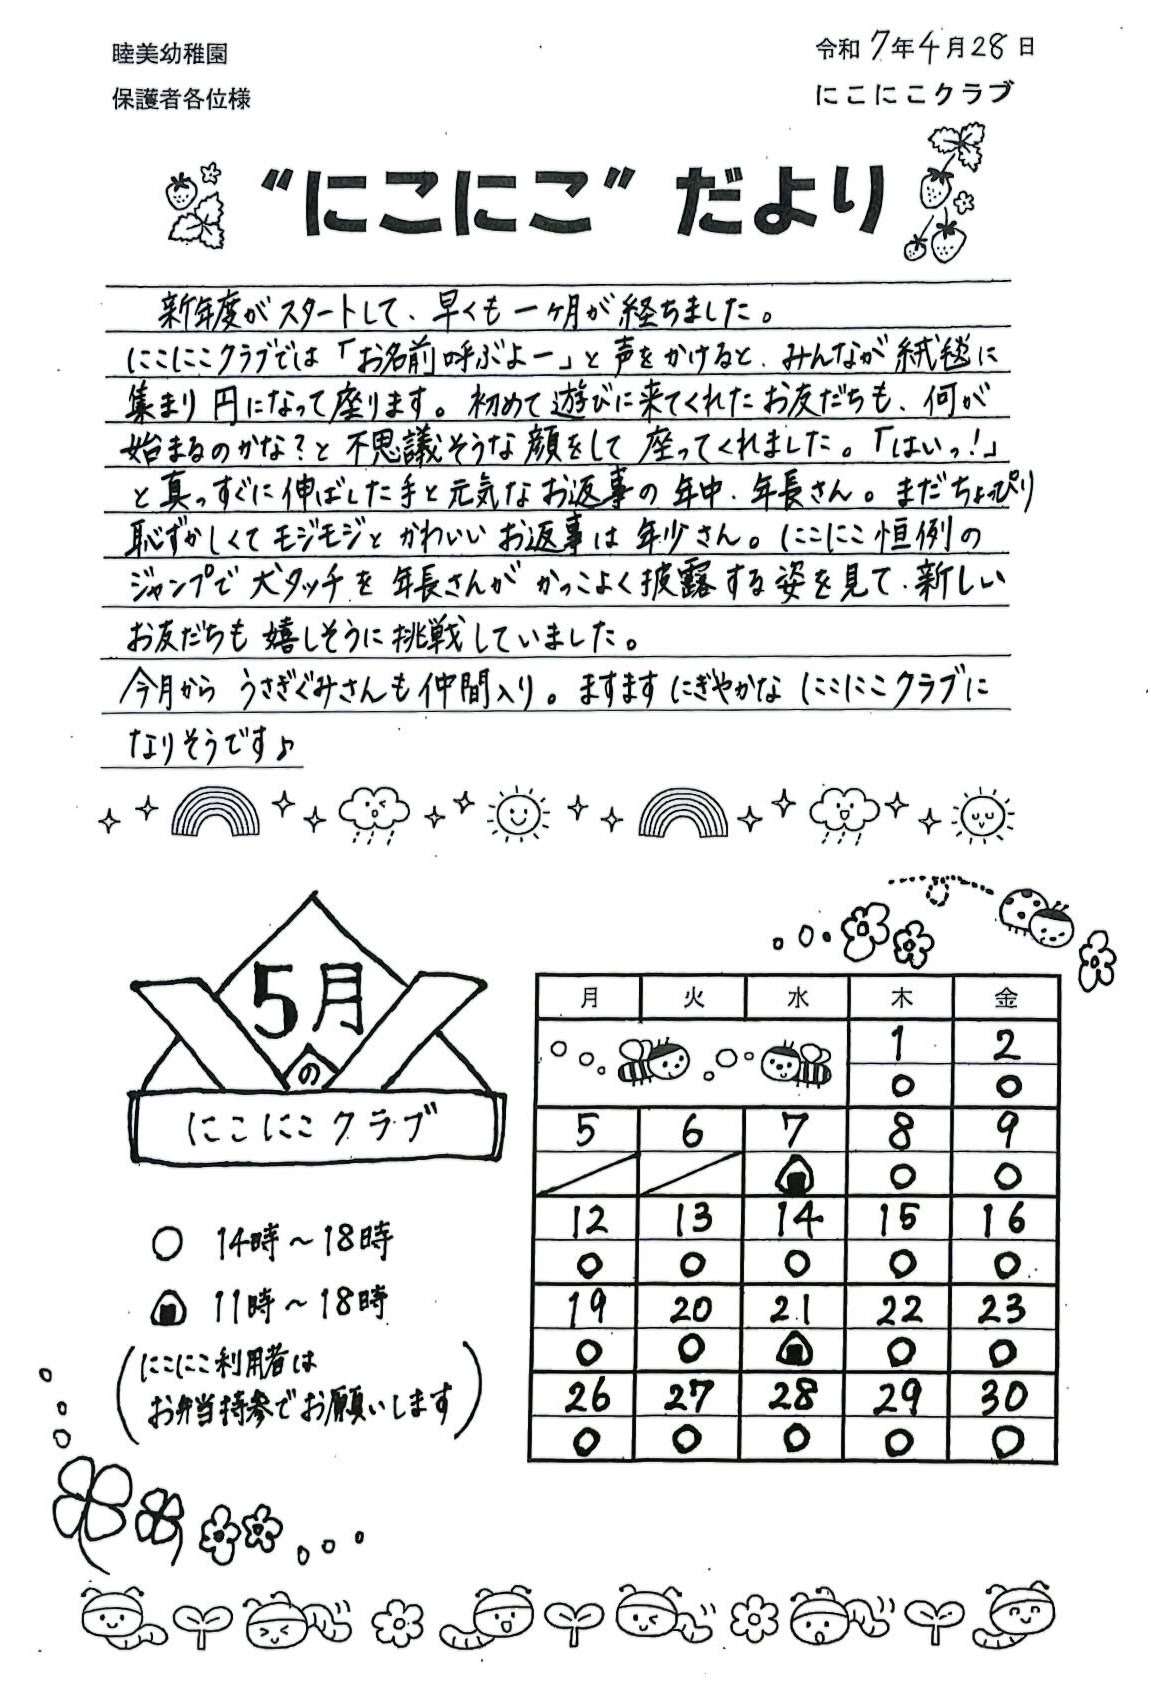 睦美幼稚園
保護者各位様
令和7年4月28日
にこにこクラブ
“にこにこ”だより
新年度がスタートして、早くも一ヶ月が経ちました。
にこにこクラブでは「お名前呼ぶよー」と声をかけると、みんなが絨毯に
集まり円になって座ります。初めて遊びに来てくれたお友だちも、何が
始まるのかな？と不思議そうな顔をして座ってくれました。「はいっ！」
と真っすぐに伸ばした手と元気なお返事の年中、年長さん。まだちょっぴり
恥ずかしくてモジモジとかわいいお返事は年少さん。にこにこ恒例の
ジャンプで大タッチを年長さんがかっこよく披露する姿を見て、新しい
お友だちも嬉しそうに挑戦していました。
今月からうさぎぐみさんも仲間入り。ますますにぎやかなにこにこクラブに
なりそうです♪
5月
の
にこにこクラブ
○ 14時～18時
🍙 11時～18時
(にこにこ利用者は
お弁当持参でお願いします)
月 火 水 木 金
1 2
○ ○
5 6 7 8 9
🍙 ○ ○
12 13 14 15 16
○ ○ ○ ○ ○
19 20 21 22 23
○ ○ 🍙 ○ ○
26 27 28 29 30
○ ○ ○ ○ ○